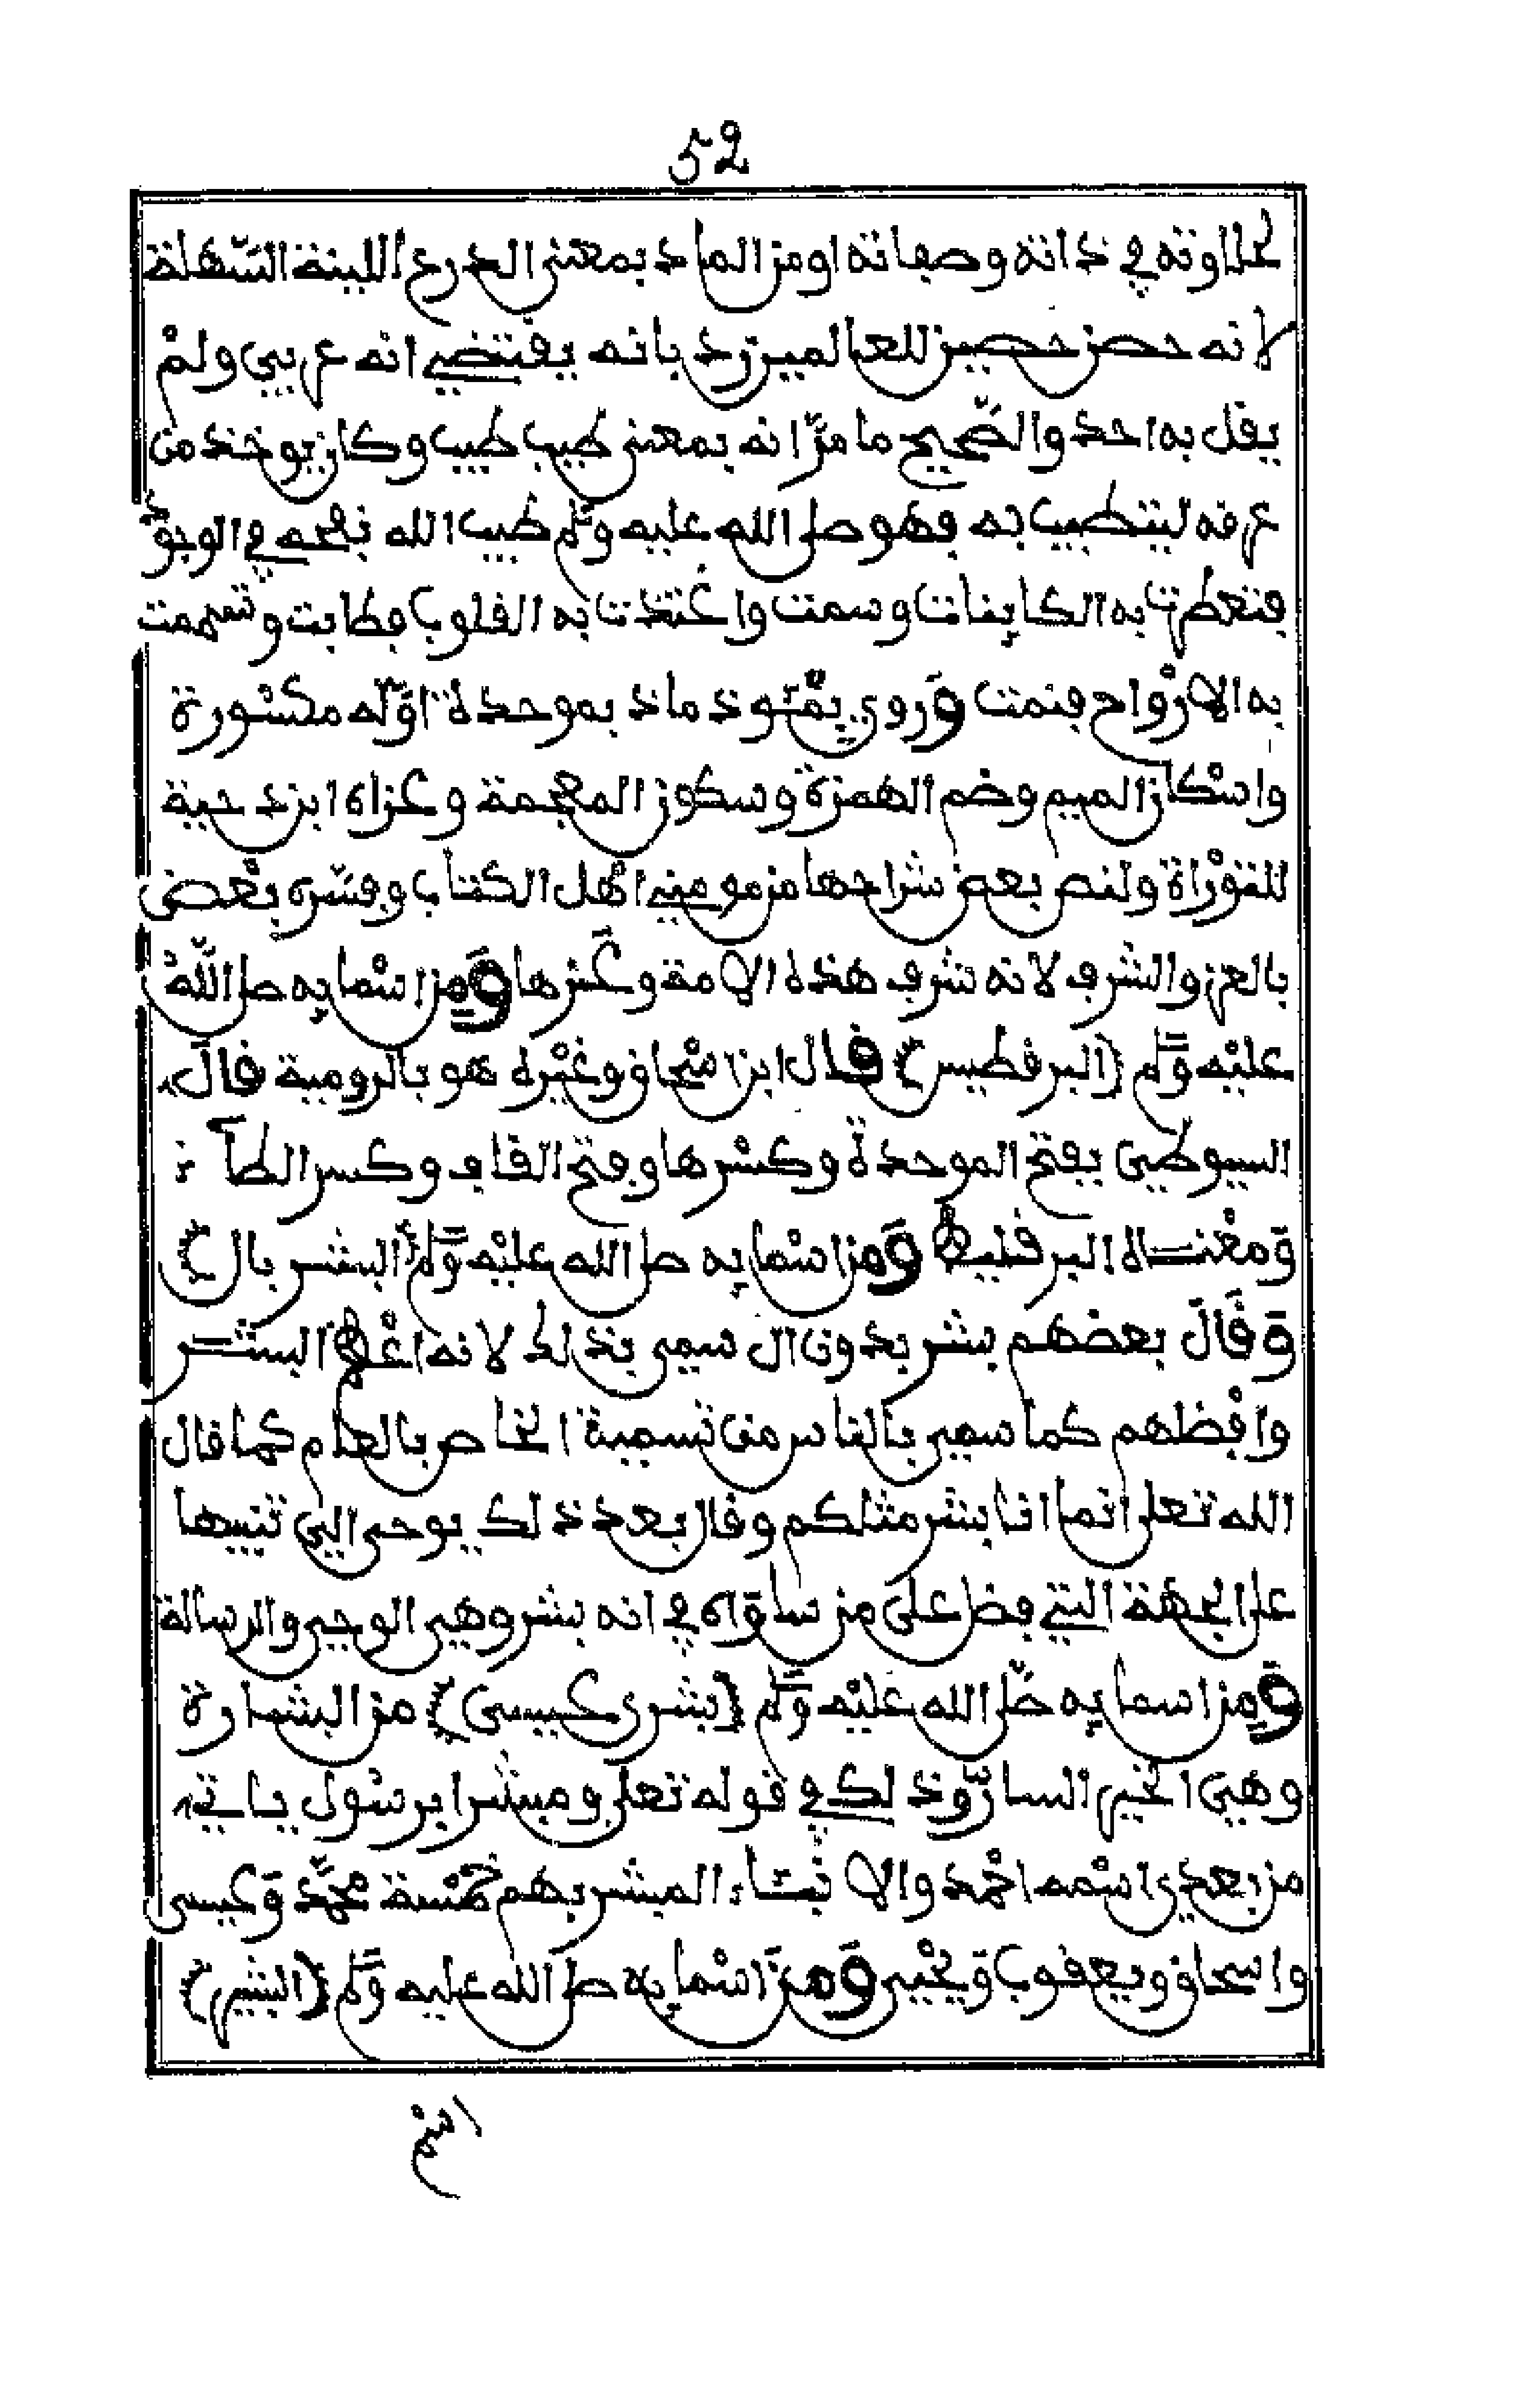 52
لحلاوته في ذاته وصفاته او من الماذ بمعنى الدرع اللينة السهلة
لانه حصن حصين للعالمين رد بانه يقتضي انه عربي ولم
يقل به احد والصحيح ما مر انه بمعنى طيب طيب وكان يوخذ من
عرقه ليتطيب به فهو صلى الله عليه وسلم طيب الله نفحه في الوجود
فتعطرت به الكاينات وسمت واغتذت به القلوب فطابت وتنسمت
به الارواح فنمت وروي بمئوذ ماذ بموحدة اوله مكسورة
واسكان الميم وضم الهمزة وسكون المعجمة وعزاه ابن دحية
للتوراة ولنص بعض شراحها من مومني اهل الكتاب وفسره بعض
بالعز والشرف لانه شرف هذه الامة وعزها ومن اسمايه صلى الله
عليه وسلم (البرقطيس) قال ابن اسحاق وغيره هو بالرومية قال
السيوطي بفتح الموحدة وكسرها وفتح القاف وكسر الطآ
ومعناه البرقليط ومن اسمايه صلى الله عليه وسلم (البشر بال)
وقال بعضهم بشر بدون ال سمي بذلك لانه اعظم البشر
وافضلهم كما سمي بالناس من تسمية الخاص بالعام كما قال
الله تعلى انما انا بشر مثلكم وقال بعد ذلك يوحى الي تنبيها
على الجهة التي فضل على من ساواه في انه بشر وهي الوحي والرسالة
ومن اسمايه صلى الله عليه وسلم (بشرى عيسى) من البشارة
وهي الخبر السار وذلك في قوله تعلى ومبشرا برسول ياتي
من بعدي اسمه احمد والانبياء المبشر بهم خمسة محمد وعيسى
واسحاق ويعقوب ويحيى ومن اسمايه صلى الله عليه وسلم (البشير)
اسم